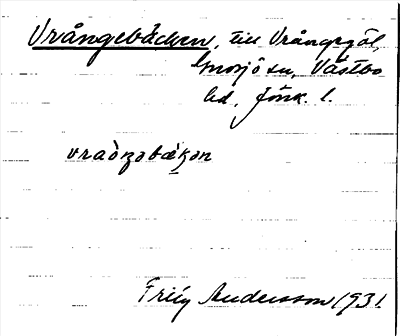 Vrångebäcken, till Vrångegöl,
Gnosjö sn, Västbo
hd, Jönk. l.
vraὸŋəbækən
Fritz Andersson 1931